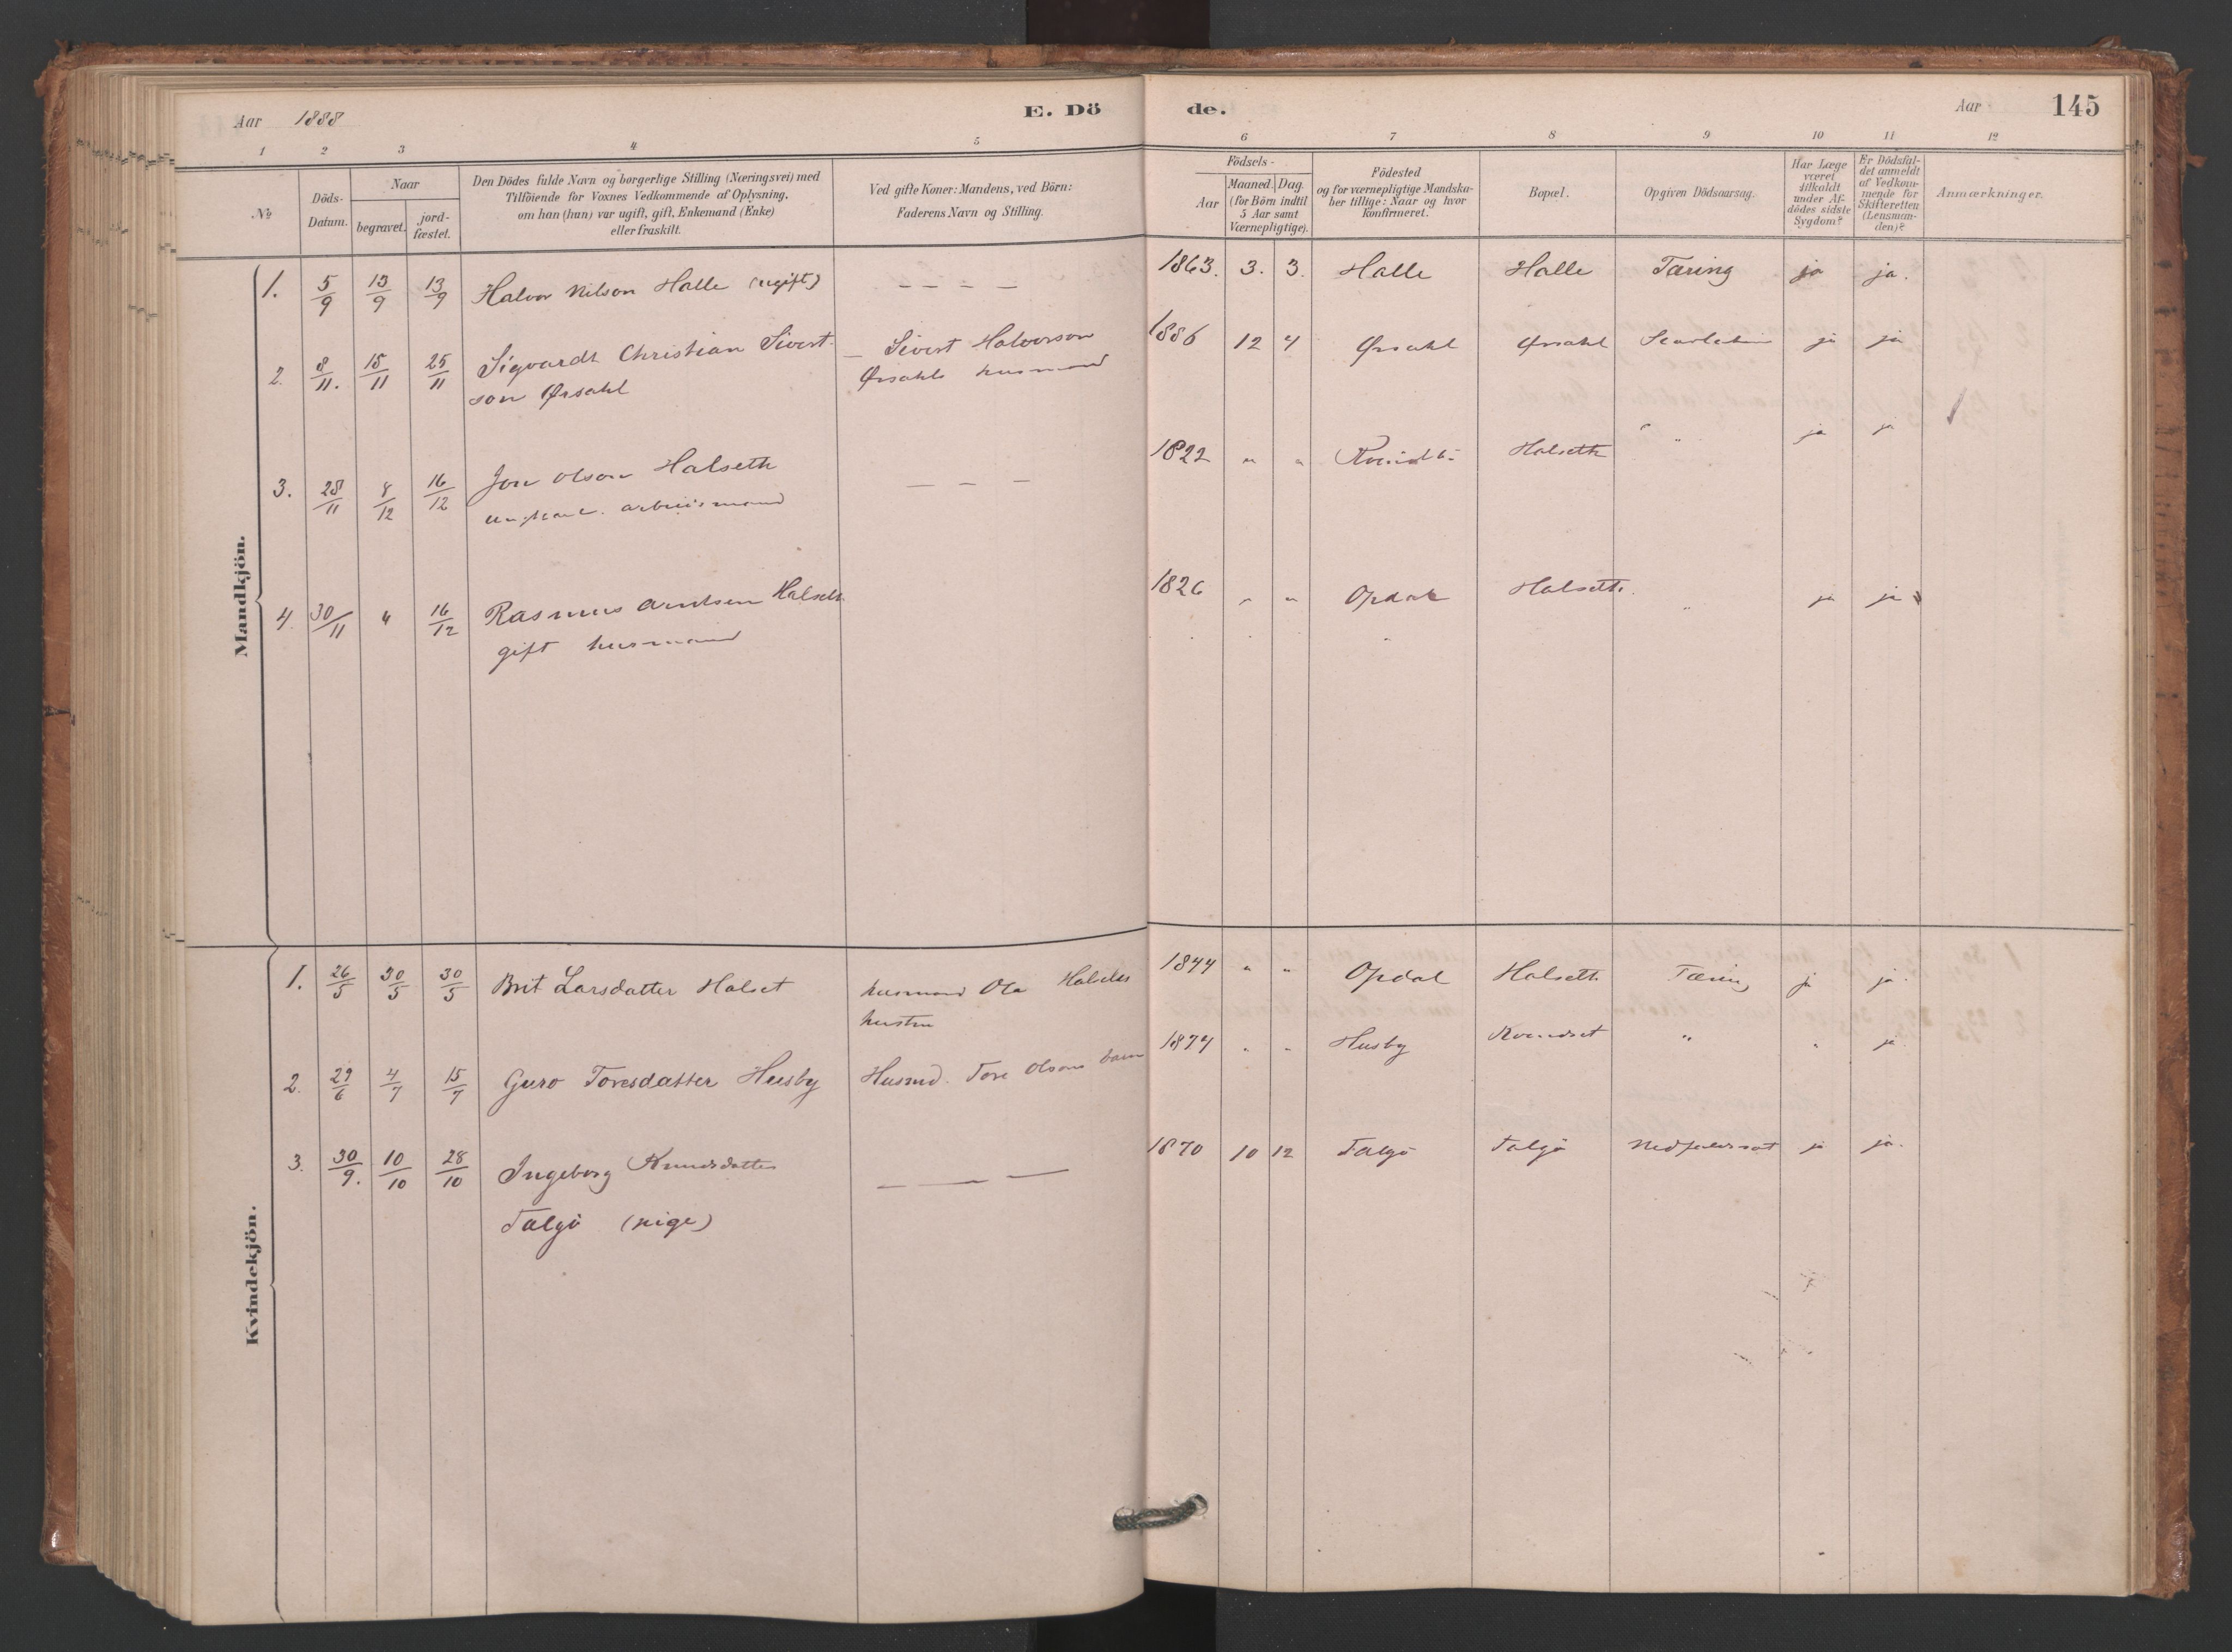 Aar 1888
E. Dö
de.
Aar 145
1 2 3 4 5 6 7 8 9 10 11 12
№
Döds-
Datum.
Naar
begravet.
jord-
fæstet.
Den Dödes fulde Navn og borgerlige Stilling (Næringsvei) med
Tilföiende for Voxnes Vedkommende af Oplysning,
om han (hun) var ugift, gift, Enkemand (Enke)
eller fraskilt.
Ved gifte Koner: Mandens, ved Börn:
Faderens Navn og Stilling.
Födsels-
Aar
Maaned. Dag.
(for Börn indtil
5 Aar samt
Værnepligtige).
Födested
og for værnepligtige Mandska-
ber tillige: Naar og hvor
konfirmeret.
Bopæl.
Opgiven Dödsaarsag.
Har Læge
været
tilkaldt
under Af-
dödes sidste
Sygdom?
Er Dödsfal-
det anmeldt
af Vedkom-
mende for
Skifteretten
(Lensman-
den)?
Anmærkninger.
Mandkjön.
1. 5/9 13/9 13/9 Halvor Nilson Halle (ugift) — — — — 1863. 3. 3. Halle Halle Tæring ja ja.
2. 8/11. 15/11 25/11 Sigvardt Christian Sivert- — Sivert Halvorson 1886 12 4 Ørsahl Ørsahl ja ja
son Ørsahl Ørsahls husmand
3. 28/11 8/12 16/12 Jon Olson Halseth — — — 1822 " " Halseth " ja ja
ungkarl. arbeidsmand
4. 30/11 " 16/12 Rasmus Arntsen Halseth 1826 " " Opdal Halseth. " ja ja
gift husmand
Kvindekjön.
1. 26/5 30/5 30/5 Brit Larsdatter Halset husmand Ola Halseths 1844 " " Opdal Halseth Tæring ja ja.
hustru
2. 29/6 4/7 15/7 Guro Toresdatter Husby Husmd. Tore Olsons barn 1874 " " Husby Kvendset " " ja.
3. 30/9. 10/10 28/10 Ingeborg Knudsdatter — — — 1870 10 12 Talgö Talgö ja ja.
Talgö (pige)